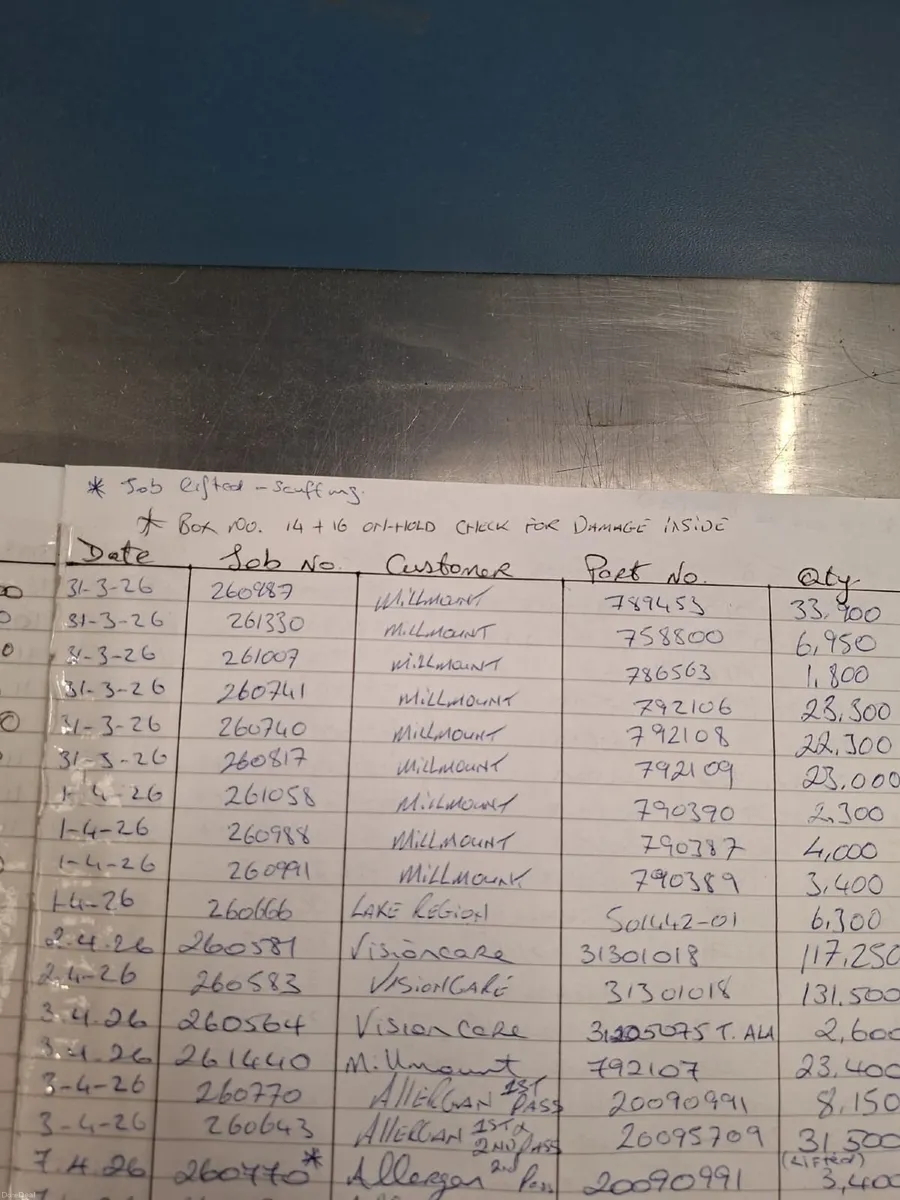 * Job lifted - scuffing.
* BOX NO. 14 + 16 ON-HOLD CHECK FOR DAMAGE INSIDE
Date Job No. Customer Part No. Qty
31-3-26 260987 Millmount 789453 33,900
31-3-26 261330 Millmount 758800 6,950
31-3-26 261007 Millmount 786563 1,800
31-3-26 260741 Millmount 792106 23,300
31-3-26 260740 Millmount 792108 22,300
31-3-26 260817 Millmount 792109 23,000
1-4-26 261058 Millmount 790390 2,300
1-4-26 260988 Millmount 790387 4,000
1-4-26 260991 Millmount 790389 3,400
1-4-26 260666 LAKE REGION 501442-01 6,300
2.4.26 260581 Visioncare 31301018 117,250
2.4-26 260583 VISIONCARE 31301018 131,500
3.4.26 260564 Vision Care 31205075 T. ALA 2,600
3.4.26 261440 Millmount 792107 23,400
3-4-26 260770 ALLERGAN 1ST PASS 20090991 8,150
3-4-26 260643 ALLERGAN 1ST & 2ND PASS 20095709 31,500
7.4.26 260770* Allergan 2nd Pass 20090991 (LIFTED) 3,400
DoneDeal